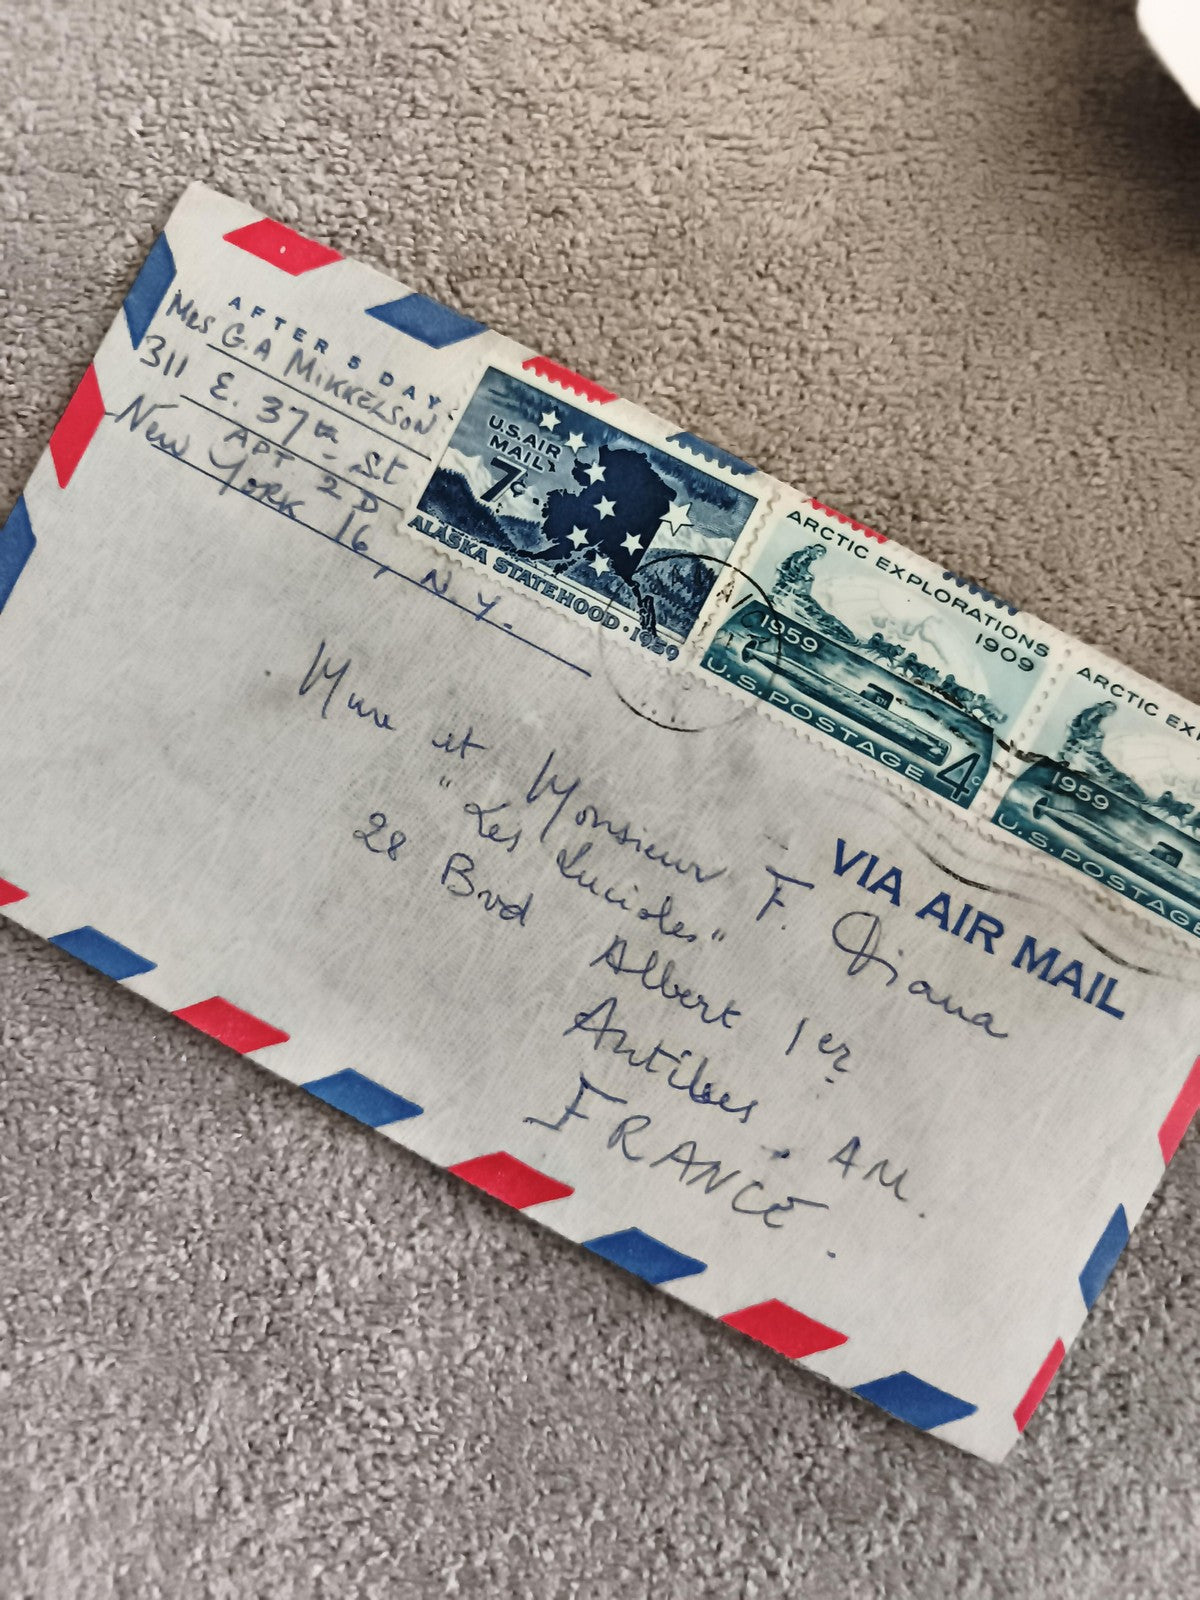 AFTER 5 DAYS
Mrs G.A MIKKELSON
311 E. 37th St
APT 2 D
New York 16, N.Y.
U.S. AIR
MAIL
7¢
ALASKA STATEHOOD · 1959
ARCTIC EXPLORATIONS
1909
1959
U.S. POSTAGE 4¢
ARCTIC EX
1959
U.S. POSTAGE
VIA AIR MAIL
Mme et Monsieur F. Diana
"Les Lucioles"
28 Bvd Albert 1er
Antibes. AM.
FRANCE.